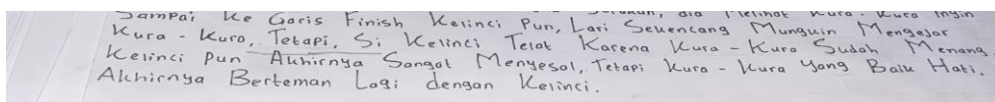 dia Melihat Kura - Kura Ingin
Sampai Ke Garis Finish Kelinci Pun, Lari Sekencang Mungkin Mengejar
Kura - Kura, Tetapi, Si Kelinci Telat Karena Kura - Kura Sudah Menang.
Kelinci Pun Akhirnya Sangat Menyesal, Tetapi Kura - Kura Yang Baik Hati.
Akhirnya Berteman Lagi dengan Kelinci.